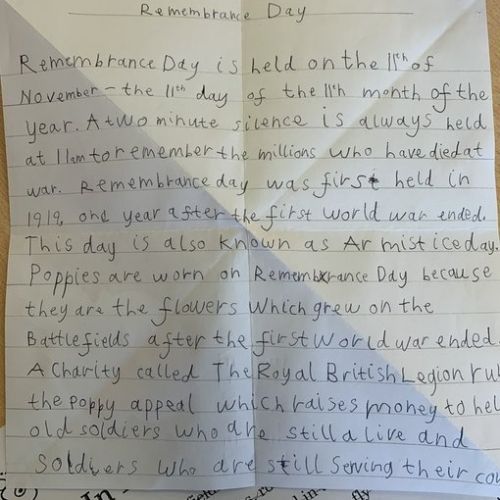 Remembrance Day
Remembrance Day is held on the 11th of
November - the 11th day of the 11th month of the
year. A two minute silence is always held
at 11am to remember the millions who have died at
war. Remembrance day was first held in
1919, one year after the first world war ended.
This day is also known as Armistice day.
Poppies are worn on Remembrance Day because
they are the flowers which grew on the
Battlefields after the first World war ended.
A Charity called The Royal British Legion ru
the poppy appeal which raises money to hel
old soldiers who are still alive and
soldiers who are still serving their cou